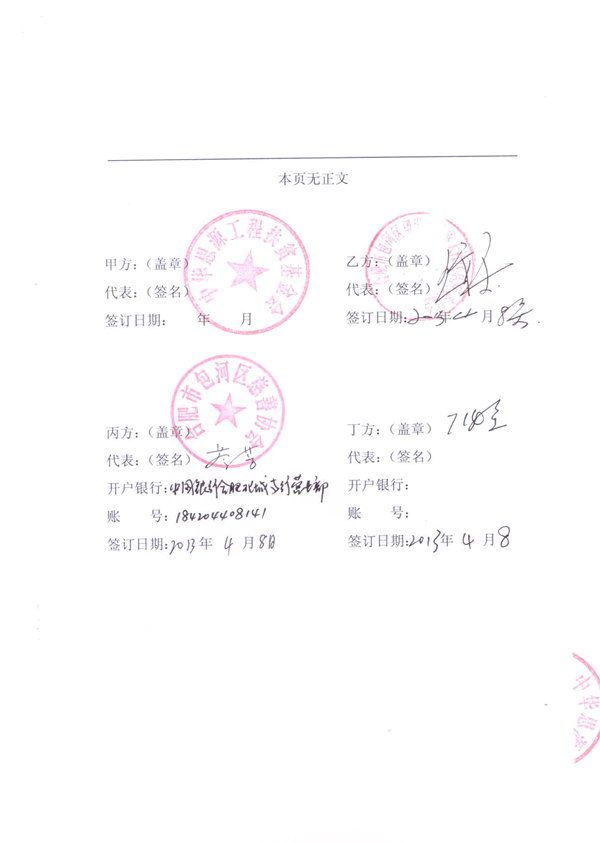 本页无正文
中华思源工程扶贫基金会
甲方：（盖章）
代表：（签名）
签订日期： 年 月
乙方：（盖章）
代表：（签名）
签订日期: 年 月
合肥市包河区慈善协会
丙方：（盖章）
代表：（签名）
开户银行:中国银行合肥北城支行营业部
账 号: 184204408141
签订日期:2013年 4月8日
丁方：（盖章）
代表：（签名）
开户银行：
账 号：
签订日期:2013年 4月8
中华思源